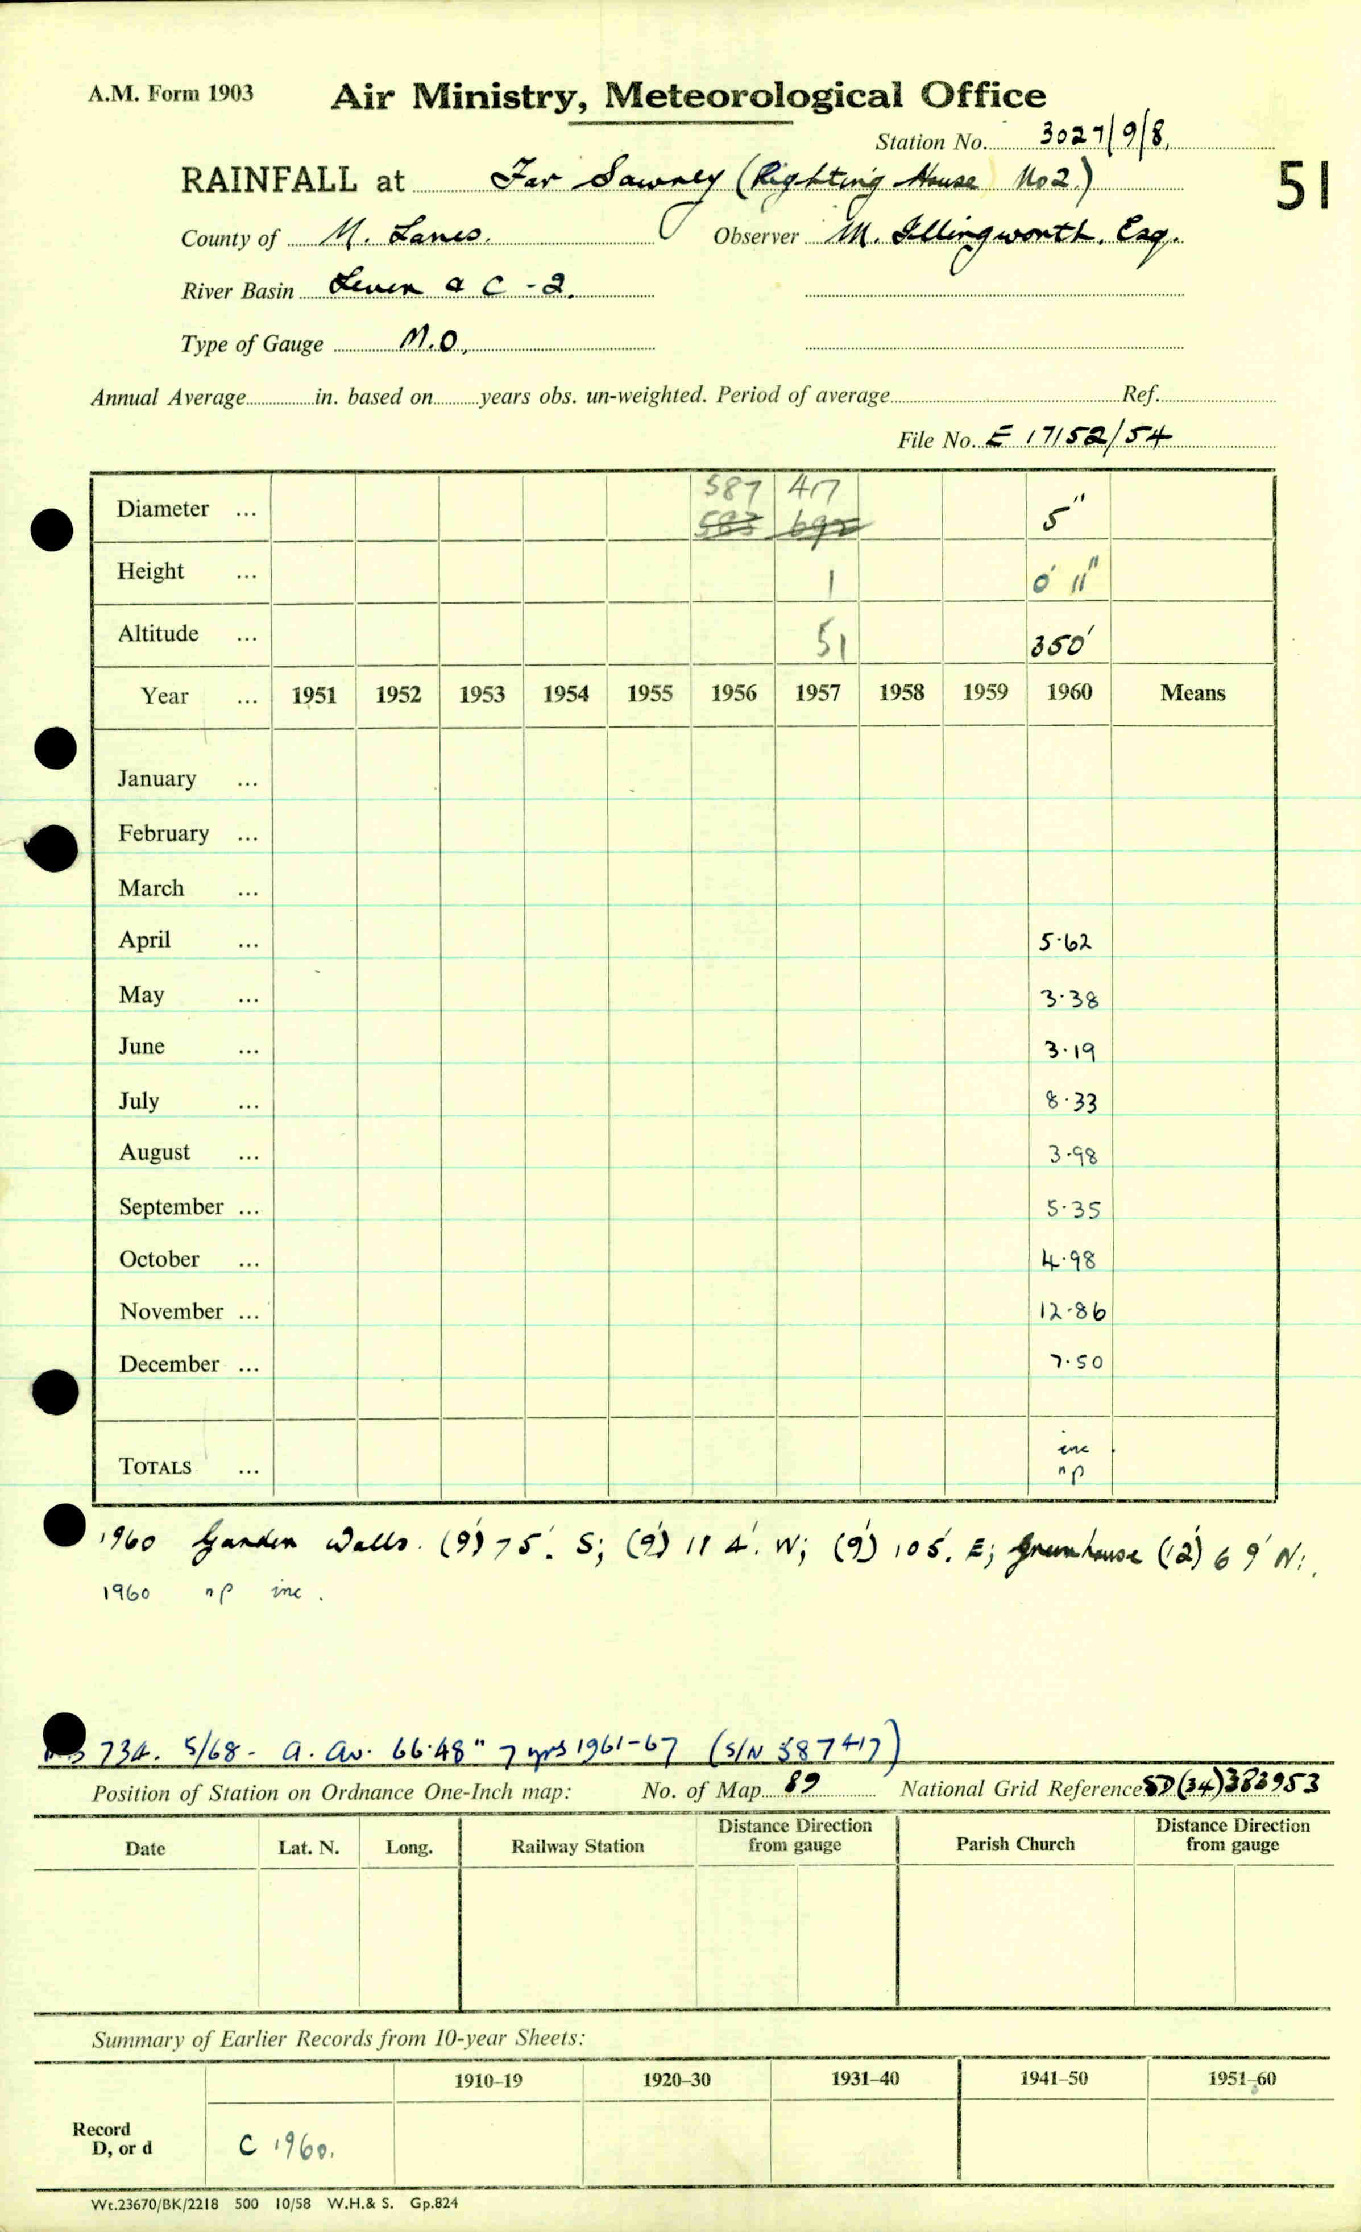 A.M. Form 1903 Air Ministry, Meteorological Office
Station No. 3027/9/8.
RAINFALL at Far Sawrey (Righting House No2.) 51
County of N. Lancs. Observer M. Illingworth, Esq.
River Basin Leven & C - 2.
Type of Gauge M.O.
Annual Average in. based on years obs. un-weighted. Period of average Ref.
File No. E 17152/54
587 417
Diameter ... 583 692 5"
Height ... 1 0' 11"
Altitude ... 51 350'
Year ... 1951 1952 1953 1954 1955 1956 1957 1958 1959 1960 Means
January ...
February ...
March ...
April ... 5.62
May ... 3.38
June ... 3.19
July ... 8.33
August ... 3.98
September ... 5.35
October ... 4.98
November ... 12.86
December ... 7.50
inc
TOTALS ... np
1960 Garden Walls. (9') 75'. S; (9') 114'. W; (9') 105'. E; Greenhouse (12') 69' N.
1960 np inc.
734. 5/68 - a. av. 66.48" 7 yrs 1961-67 (S/N 587417)
Position of Station on Ordnance One-Inch map: No. of Map 89 National Grid Reference SD(34)383953
Date Lat. N. Long. Railway Station Distance Direction from gauge Parish Church Distance Direction from gauge
Summary of Earlier Records from 10-year Sheets:
1910–19 1920–30 1931–40 1941–50 1951–60
Record
D, or d C 1960.
Wt.23670/BK/2218 500 10/58 W.H.& S. Gp.824